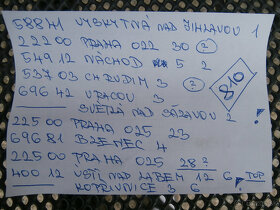 58841 VYSKYTNÁ NAD JIHLAVOU 1
22200 PRAHA 022 30 ?
549 12 NÁCHOD 5 2
537 03 CHRUDIM 3 ?
696 42 VRACOV 3
810
SVĚTLÁ NAD SÁZAVOU 2
22500 PRAHA 025 23
69681 BZENEC 4
22500 PRAHA 025 28 ?
400 12 ÚSTÍ NAD LABEM 12 6 TOP
KOPŘIVNICE 3 6